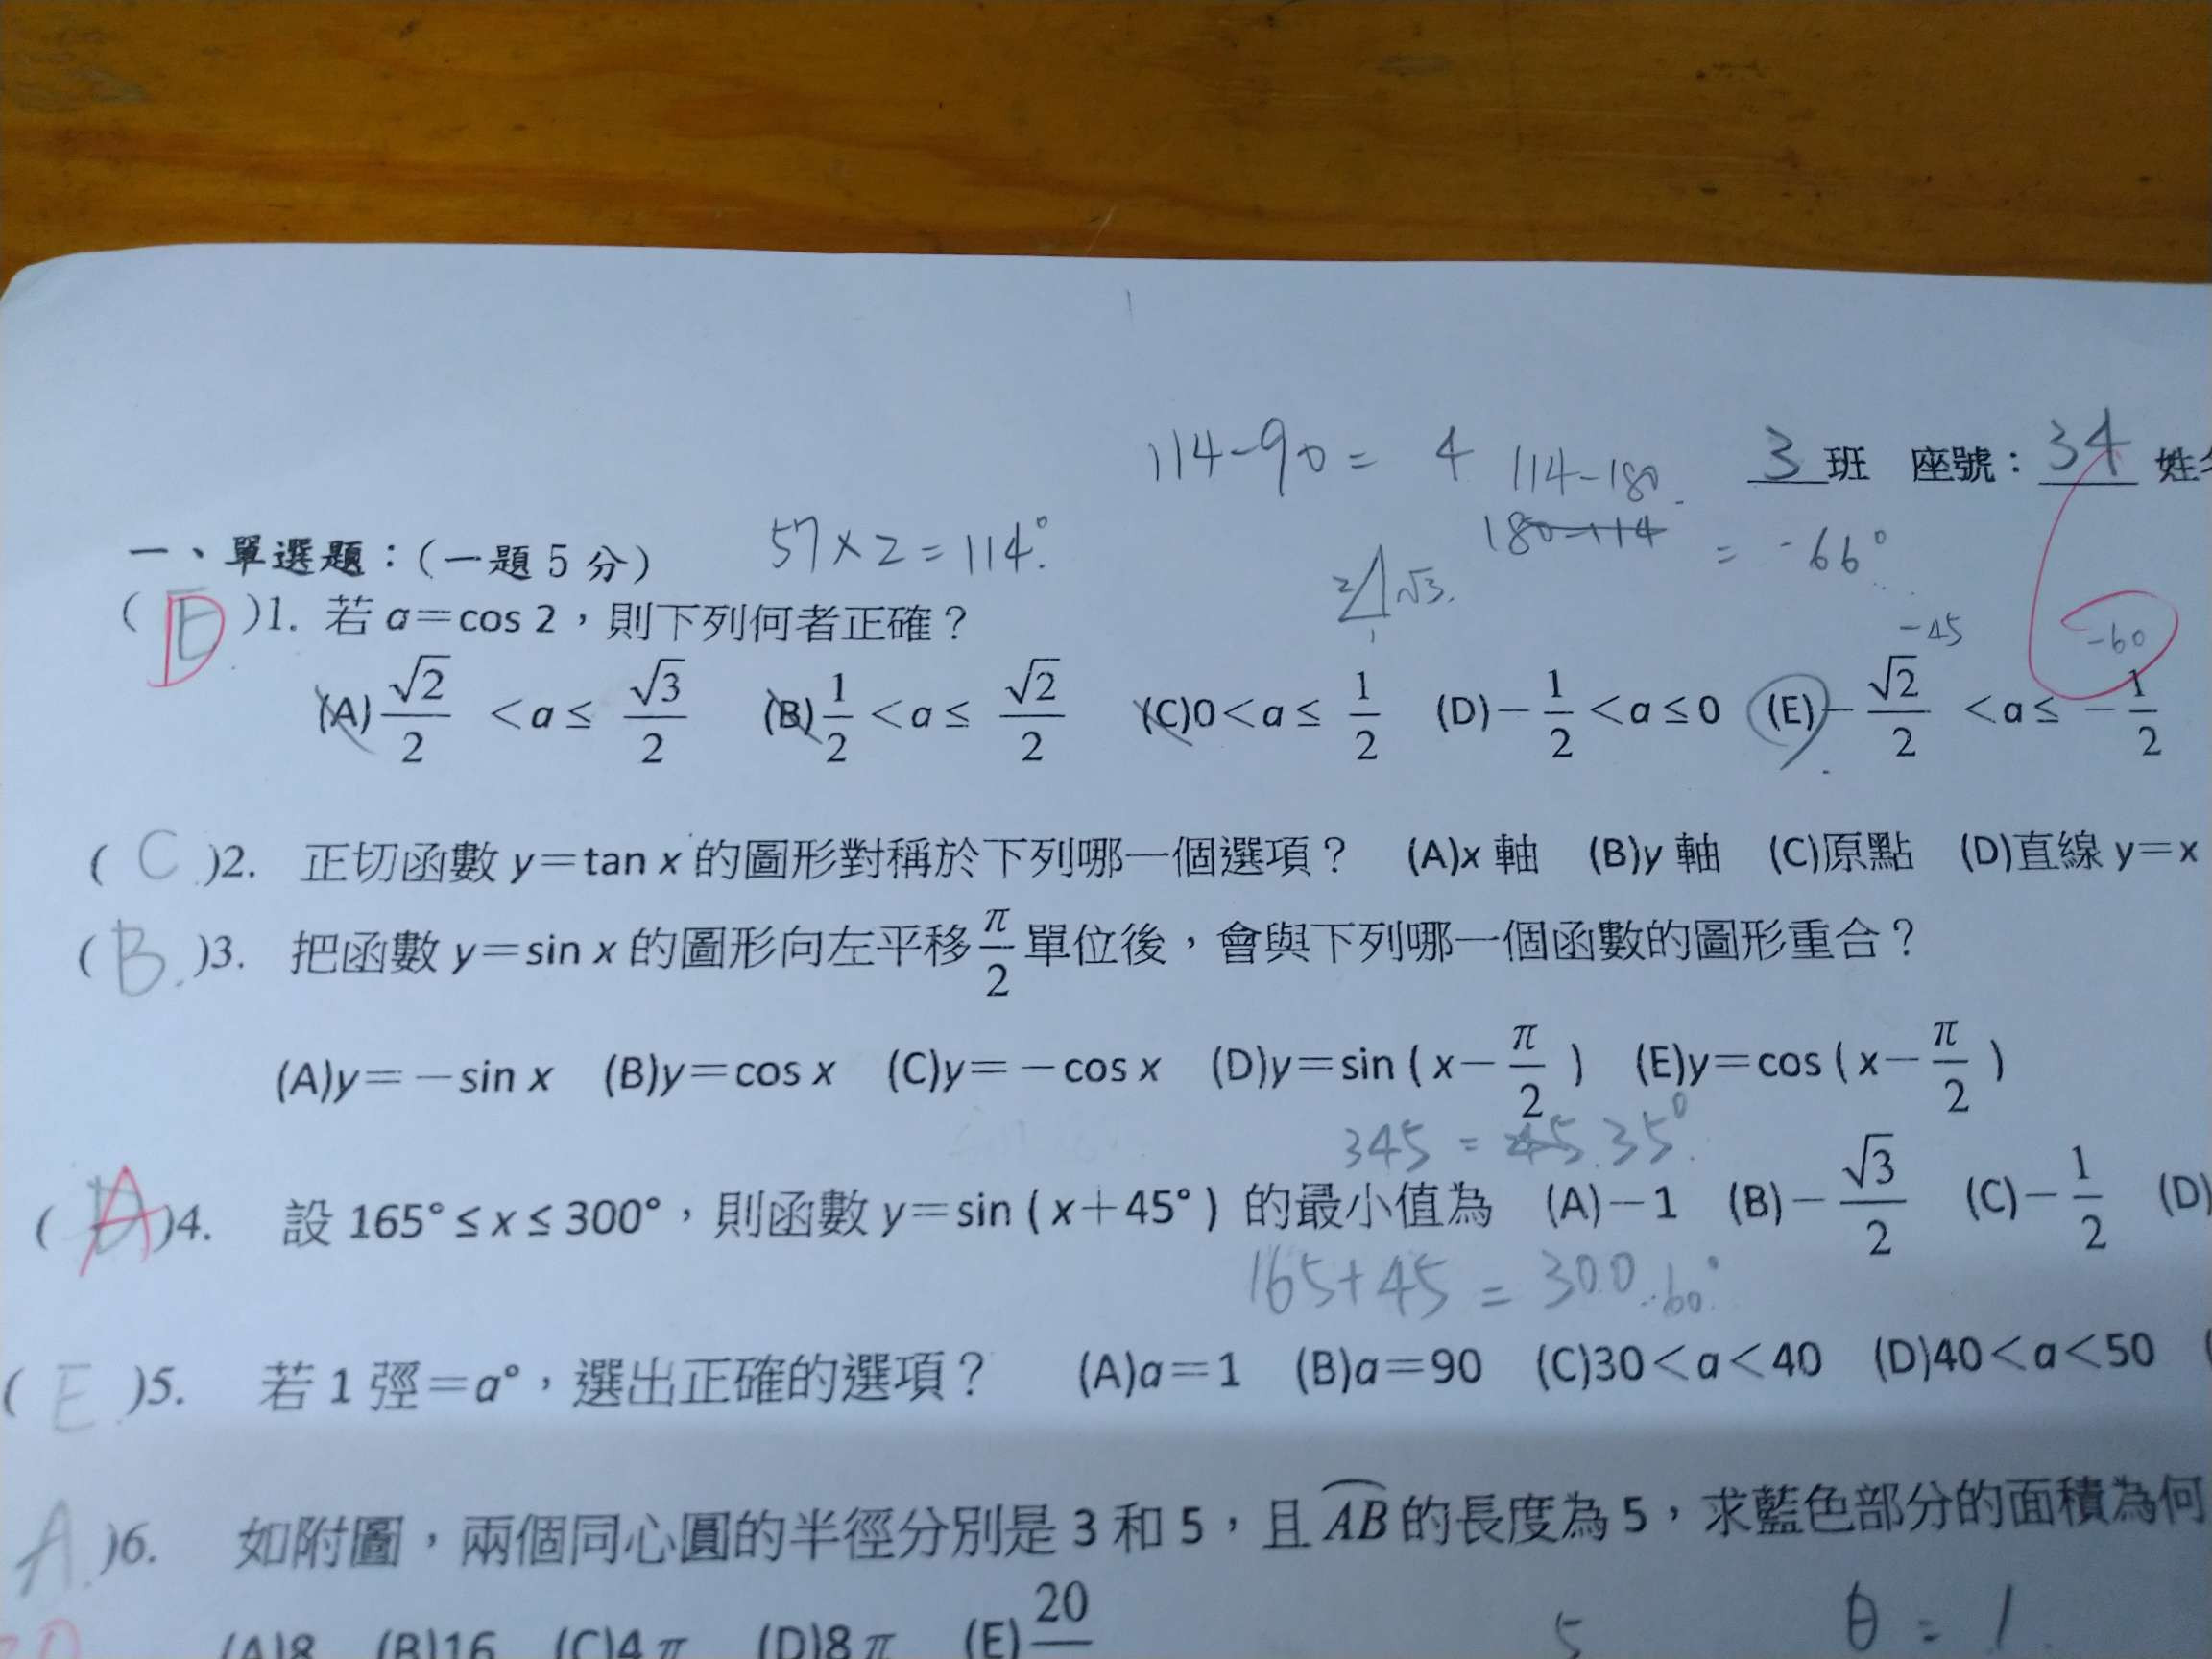 114-90= 4 114-180
3班 座號：34 姓
180-114 = -66°
一、單選題：(一題5分) 57×2=114°
2 √3 1
(D)1. 若 a＝cos 2，則下列何者正確？
-45 -60
(A) √2/2 ＜a≤ √3/2 (B) 1/2 ＜a≤ √2/2 (C)0＜a≤ 1/2 (D)－1/2＜a≤0 (E)－√2/2 ＜a≤ －1/2
( C )2. 正切函數 y＝tan x 的圖形對稱於下列哪一個選項？ (A)x 軸 (B)y 軸 (C)原點 (D)直線 y＝x
( B )3. 把函數 y＝sin x 的圖形向左平移 π/2 單位後，會與下列哪一個函數的圖形重合？
(A)y＝－sin x (B)y＝cos x (C)y＝－cos x (D)y＝sin ( x－π/2 ) (E)y＝cos ( x－π/2 )
345 = 45 35°
( A )4. 設 165°≤x≤300°，則函數 y＝sin ( x＋45° ) 的最小值為 (A)－1 (B)－√3/2 (C)－1/2 (D)
165+45 = 300 60°
( E )5. 若 1 弳＝a°，選出正確的選項？ (A)a＝1 (B)a＝90 (C)30＜a＜40 (D)40＜a＜50
A )6. 如附圖，兩個同心圓的半徑分別是 3 和 5，且 AB 的長度為 5，求藍色部分的面積為何
(A)8 (B)16 (C)4π (D)8π (E) 20 5 θ = 1